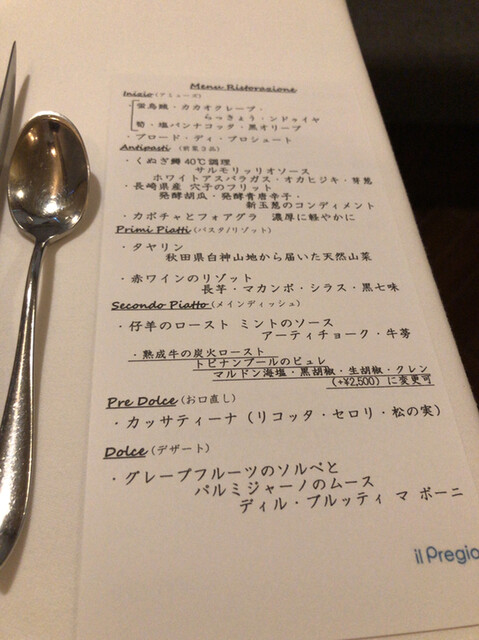 Menu Ristorazione
Inizio(アミューズ)
・蛍烏賊・カカオクレープ・
らっきょう・ンドゥイヤ
筍・塩パンナコッタ・黒オリーブ
・ブロード・ディ・プロシュート
Antipasti (前菜3品)
・くぬぎ鱒40℃調理
サルモリッリオソース
ホワイトアスパラガス・オカヒジキ・芽葱
・長崎県産 穴子のフリット
発酵胡瓜・発酵青唐辛子・
新玉葱のコンディメント
・カボチャとフォアグラ 濃厚に軽やかに
Primi Piatti(パスタ/リゾット)
・タヤリン
秋田県白神山地から届いた天然山菜
・赤ワインのリゾット
長芋・マカンボ・シラス・黒七味
Secondo Piatto(メインディッシュ)
・仔羊のロースト ミントのソース
アーティチョーク・牛蒡
・熟成牛の炭火ロースト
トピナンブールのピュレ
マルドン海塩・黒胡椒・生胡椒・クレン
(+¥2,500)に変更可
Pre Dolce(お口直し)
・カッサティーナ(リコッタ・セロリ・松の実)
Dolce(デザート)
・グレープフルーツのソルベと
パルミジャーノのムース
ディル・ブルッティ マ ボーニ
il Pregio